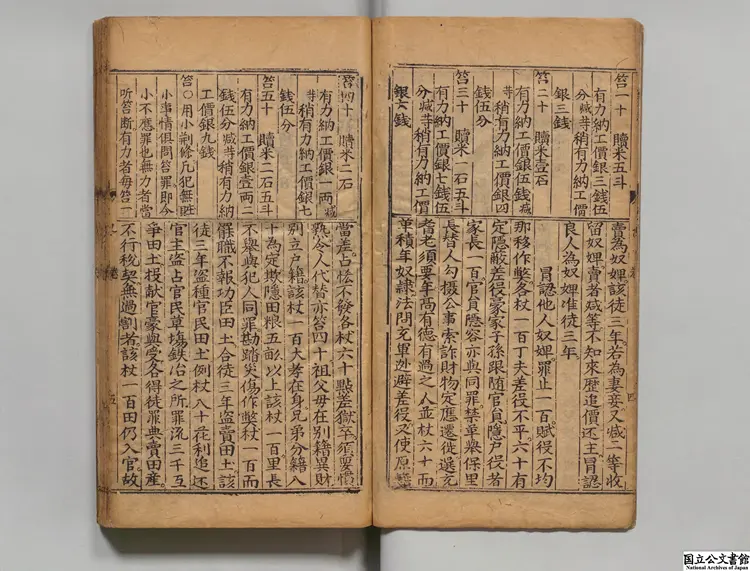 笞一十　贖米五斗
有力納工價銀三錢伍
分減等稍有力納工價
銀三錢
笞二十　贖米壹石
有力納工價銀伍錢減
等稍有力納工價銀四
錢伍分
笞三十　贖米一石五斗
有力納工價銀七錢伍
分減等稍有力納工價
銀六錢
賣為奴婢該徒三年若為妻妾又减一等收
留奴婢賣者减等不知來歷追價还主冒認
良人為奴婢准徒三年
冒認他人奴婢罪止一百賦役不均
那移作弊各杖一百丁夫差役不平六十有
定隱蔽差役豪家子孫跟隨官員隱戶役者
家長一百官員隱容亦與同罪禁革舉保里
長替人勾摄公事索詐財物定應遷徙選充
耆老須要年高有德有過之人並杖六十而
革積年奴隷法問充軍逃避差役又使原
笞四十　贖米二石
有力納工價銀一両減
等稍有力納工價銀七
錢伍分
笞五十　贖米二石五斗
有力納工價銀壹両二
錢伍分減等稍有力納
工價銀九錢
笞〇用小荆條凡犯無賍
小事情俱問笞罪即今
小不應罪也無力者當
听笞断有力者每笞一
當差占恡不發各杖六十點差獄卒須要慣
熟令人代替亦笞四十祖父母在別籍異財
別立戶籍該杖一百大孝在身兄弟分籍八
十為定欺隱田粮五畝以上該杖一百里長
不舉與犯人同罪勘踏災傷作弊杖一百而
罷職不報功臣田土合徒三年盗賣田土該
徒三年盗種官民田土例杖八十花利追还
官主盗占官民草塲鉄冶之所罪流三千互
争田土投献官豪與受各得徒罪典賣田產
不行稅契無過割者該杖一百田仍入官故
五
国立公文書館
National Archives of Japan